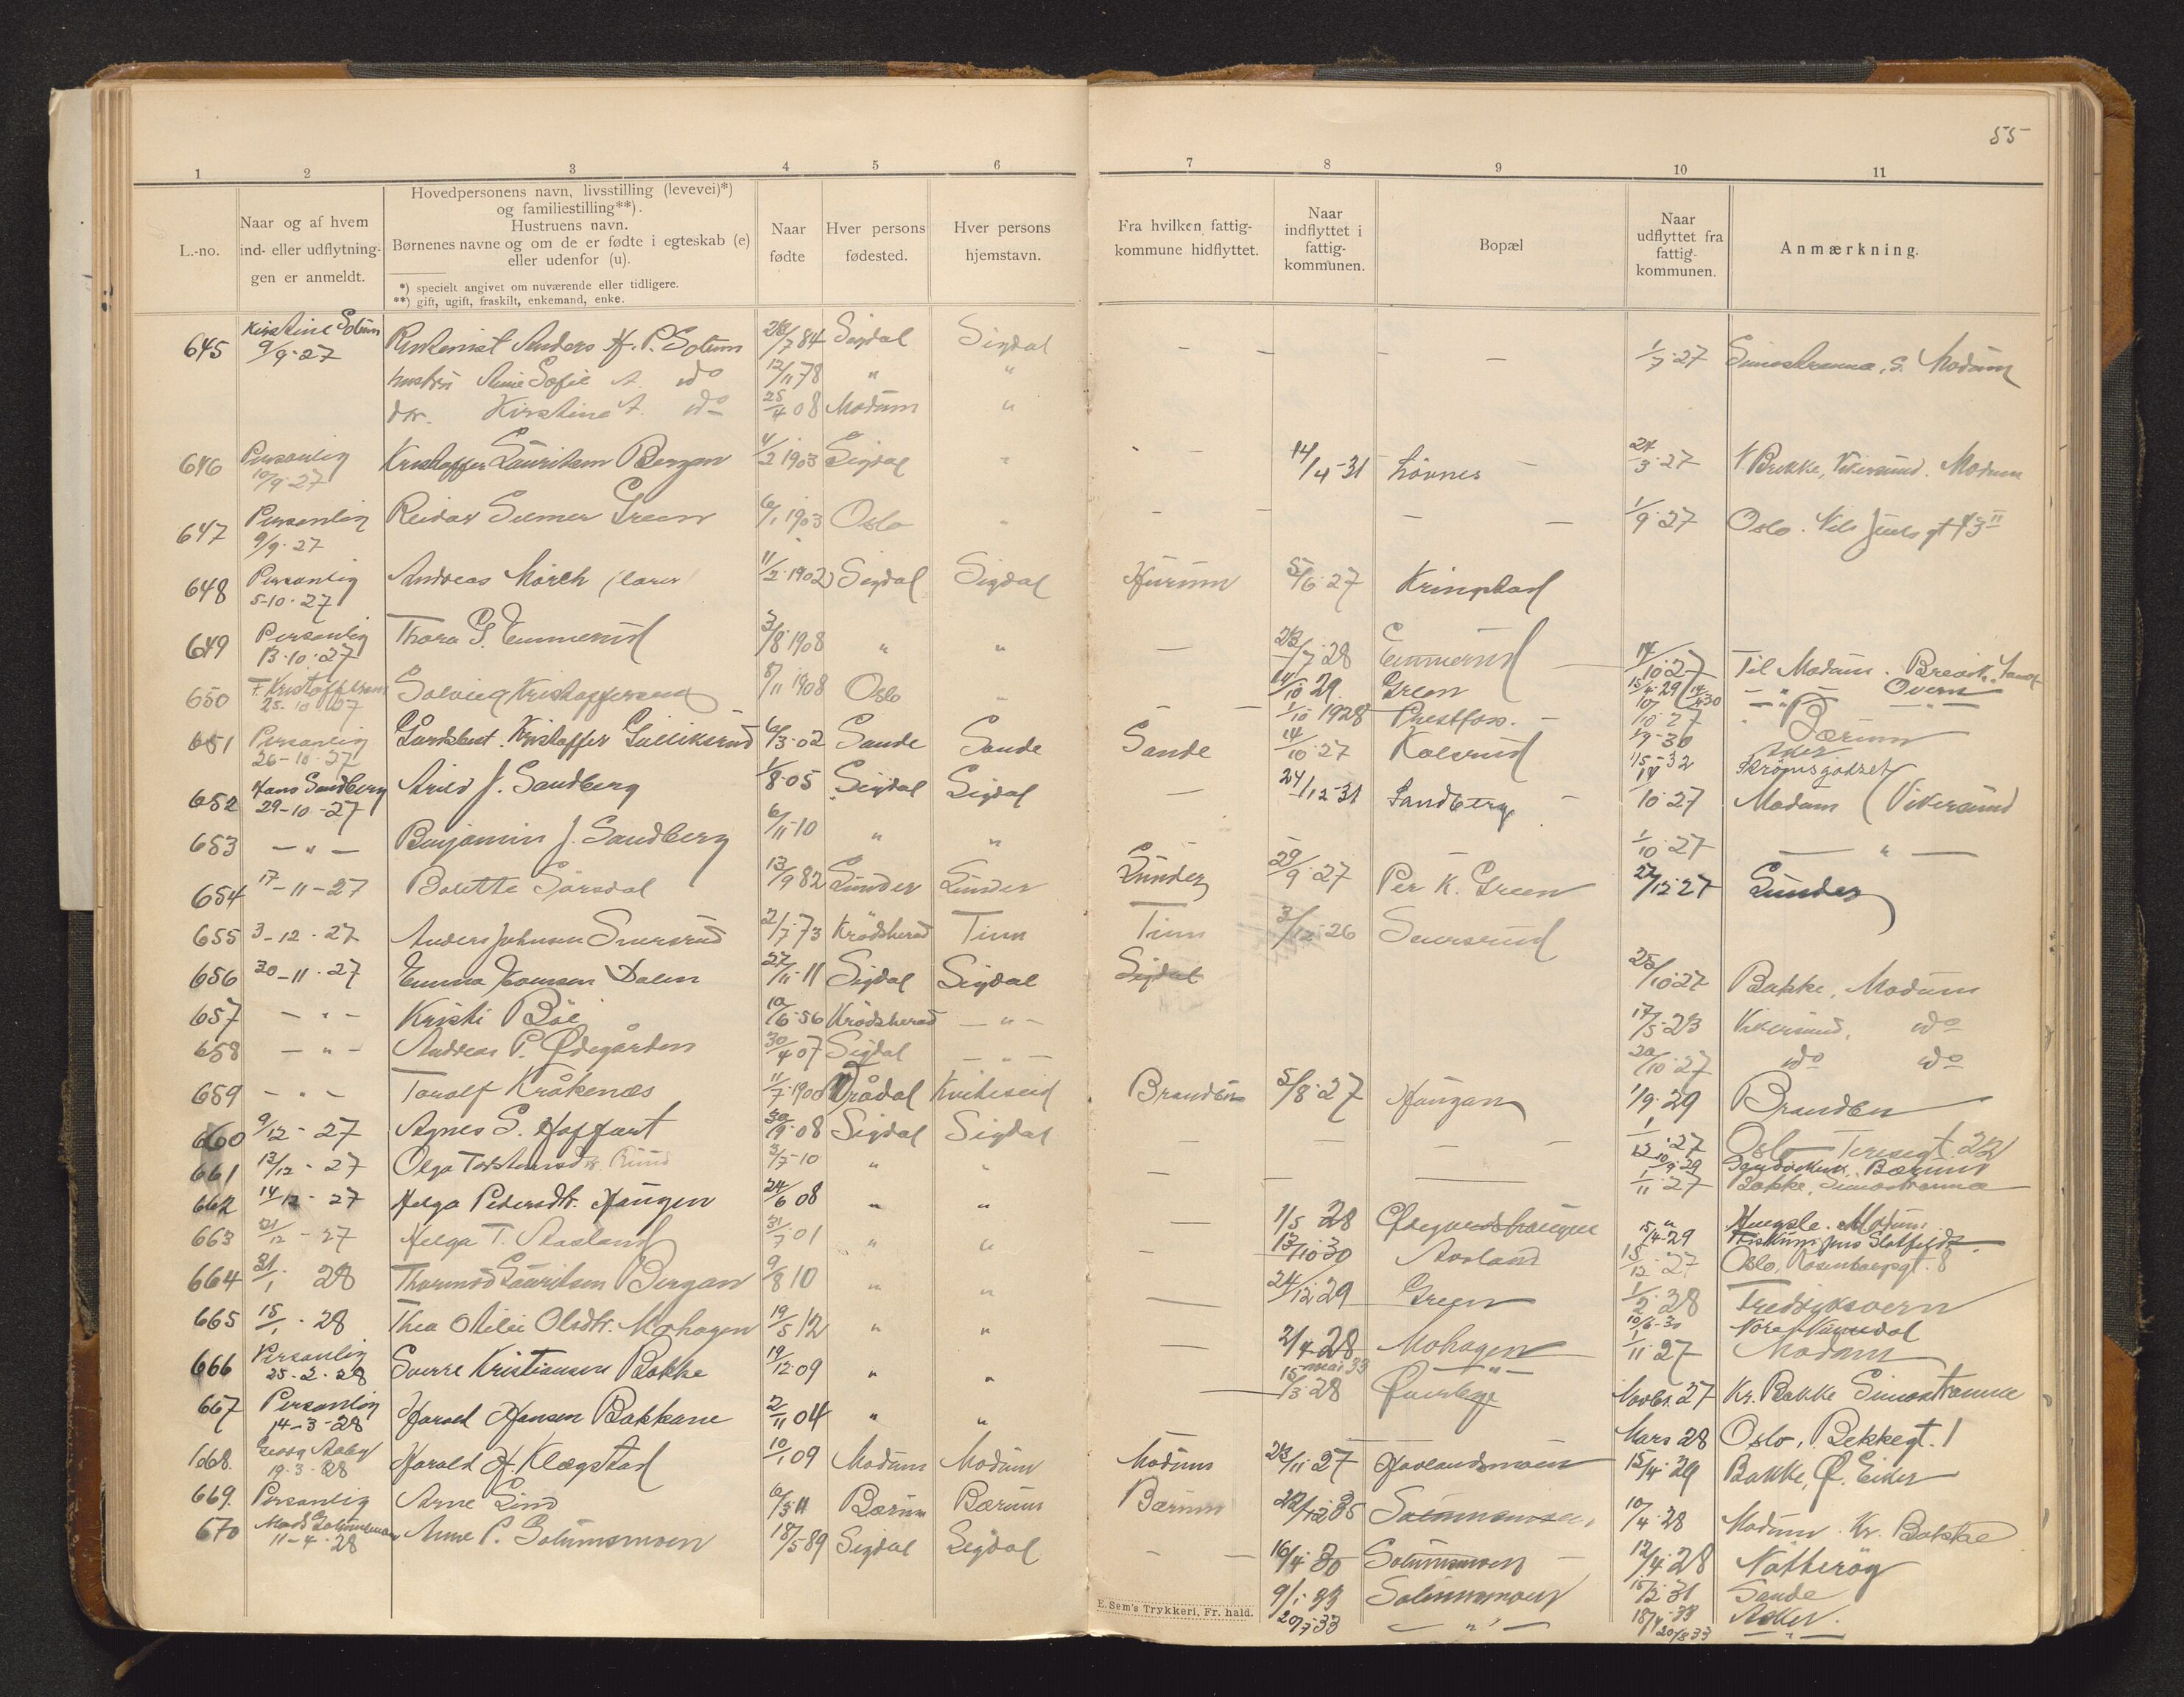 55
1 2 3 4 5 6 7 8 9 10 11
L.-no.
Naar og af hvem
ind- eller udflytning-
gen er anmeldt.
Hovedpersonens navn, livsstilling (levevei)*)
og familiestilling**).
Hustruens navn.
Børnenes navne og om de er fødte i egteskab (e)
eller udenfor (u).
*) specielt angivet om nuværende eller tidligere.
**) gift, ugift, fraskilt, enkemand, enke.
Naar
fødte
Hver persons
fødested.
Hver persons
hjemstavn.
Fra hvilken fattig-
kommune hidflyttet.
Naar
indflyttet i
fattig-
kommunen.
Bopæl
Naar
udflyttet fra
fattig-
kommunen.
Anmærkning.
645 Kirstine Solum 9/9-27 Anders H. P. Solum 28/7 84 Sigdal Sigdal — — — — 1/7-27 Simostranna, S. Modum
hustru Anne Sofie A. do 12/11 78 " "
dtr. Kirstine A. do 25/4 08 Modum "
646 Personlig 10/9-27 Kristoffer Lauritsen Bergan 4/2 1903 Sigdal " - — 14/4-31 Lövnes — 24/3-27 N. Bekke, Vikersund. Modum
647 Personlig 9/9-27 Reidar Green 6/1 1903 Oslo " - — — — 1/9-27 Oslo. Nils Juels gt 43 II
648 Personlig 5-10-27 Andreas Mörch 11/2-1902 Sigdal Sigdal Hurum 5/6-27 Kringstad
649 Personlig 13-10-27 Thora G. Emmerud 3/8 1908 " " — 28/7-28 Emmerud — 14/10-27 Til Modum.
650 F. Kristoffersen 25-10-27 Solveig Kristoffersen 8/11 1908 Oslo " — 29. Green 15/4-29
— 1/10 1928 Prestfoss. — 1/10-27 Bærum
651 Personlig 26-10-27 Gårdsbest. Kristoffer Gulliksrud 6/3-02 Sande Sande Sande 14/10 27 Kolsrud 1/9-30
652 Hans Sandberg 29-10-27 Arild J. Sandberg 1/8-05 Sigdal Sigdal — 24/12-31 Sandberg — 10-27 Modum (Vikersund
653 — " — Benjamin J. Sandberg 6/11-10 " " 1/10-27 — " —
654 17-11-27 Bolette Sørsdal 13/9 82 Lunder Lunder Lunder 29/9-27 Per K. Green 27/12 27 Lunder
655 3-12-27 Anders Johnsen Snersrud 2/7-73 Krødsherad Tinn Tinn 3/12-26 Snersrud
656 30-11-27 Emma Dalen 27/11-11 Sigdal Sigdal Sigdal 25/10 27 Bakke, Modum
657 — " — Kristi Böe 10/6-56 Krødsherad — " — 17/5-23 Vikersund, do
658 — " — Andreas P. Ødegården 30/4 07 Sigdal — " — 20/10-27 do do
659 — " — Toralf Kråkenæs 11/7-1900 Vrådal Kviteseid Brandbu 5/8-27 Haugan 1/9-29 Brandbu
660 9/12-27 Agnes S. Hoffart 30/9-08 Sigdal Sigdal — — — — 1/12-27 Oslo Teresegt. 22
661 13/12-27 Olga Torstensdtr. Ruud 3/7-10 " " — — — 10/9-29 Bærum
662 14/12-27 Helga Pedersdtr. Haugen 24/6 08 " " 1/11-27 Bakke, Simostranna
663 21/12-27 Helga T. Aasland 31/7 01 " " — 1/5 28 15/4-29 Modum
— 13/10 30 Aasland 15/12-27 Oslo, Rosenborggt. 8
664 31/1 28 Thormod Lauritsen Bergan 9/8 10 " " — 24/12 29 Green 1/2-28 Fredriksvern
665 15/1-28 Thea Otilie Olsdtr. Mohagen 19/5 12 " " — 2/4-28 Mohagen 10/6-30 Nore Numedal
666 Personlig 25-2-28 Sverre Kristiansen Bakke 19/12-09 " " 15 mai 33 — " — 1/11 27 Modum
667 Personlig 14-3-28 Harald Hansen Bakkane 2/11 04 " " — 1/3-28 Novbr. 27 Kr. Bakke Simostranna
Mars 28 Oslo, Bekkegt. 1
668. Georg Aaby 19-3-28 Harald H. Klægstad 10/1 09 Modum Modum Modum 28/11 27 Haalandsmoen 15/4-29 Bakke, Ø. Eiker
669. Personlig Arne Lind 6/3 11 Bærum Bærum Bærum 35 10/4-28 Modum. Kr. Bakke
670 11-4-28 Anne P. Solumsmoen 18/5 89 Sigdal Sigdal — — 16/4-30 Solumsmoen — 12/4-28 Nötteröy
9/1-33 Solumsmoen 31 Sande
20/7-33 — " — 18/4-33 Asker.
20/8 33 — " —
E. Sem's Trykkeri, Fr. hald.